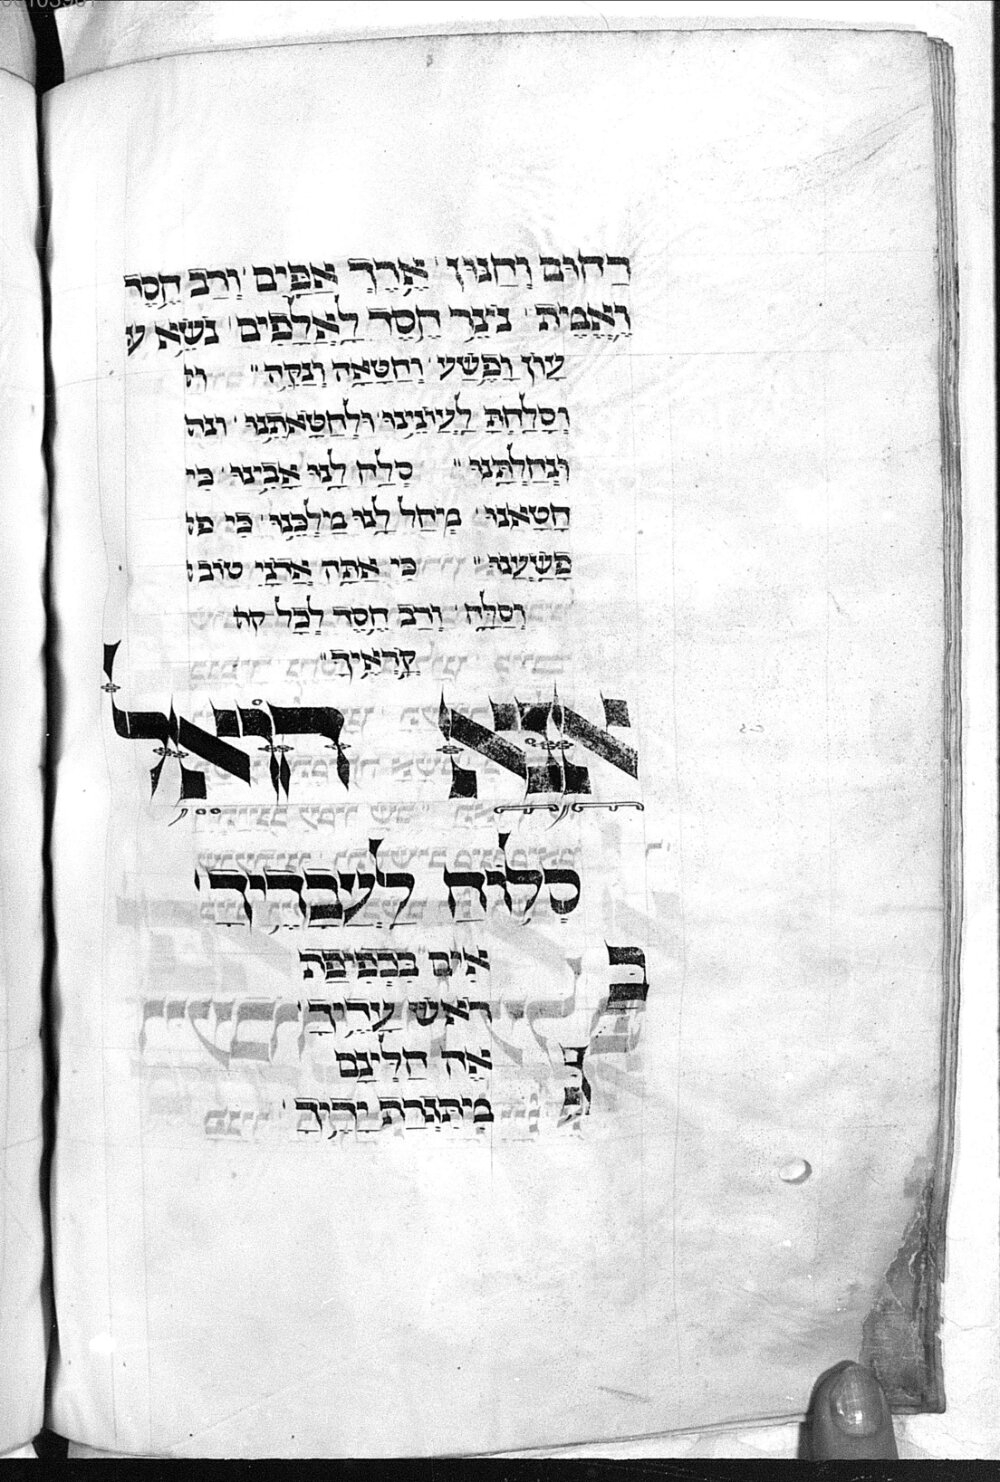 רַחוּם וְחַנּוּן אֶרֶךְ אַפַּיִם וְרַב חֶסֶד
וֶאֱמֶית נֹצֵר חֶסֶד לָאֲלָפִים נֹשֵׂא ע
עָוֹן וָפֶשַׁע וְחַטָּאָה וְנַקֵּה וּ
וְסָלַחְתָּ לַעֲוֹנֵינוּ וּלְחַטָּאתֵנוּ ונח
וּנְחַלְתָּנוּ סְלַח לָנוּ אָבִינוּ כִּי
חָטָאנוּ מְחַל לָנוּ מַלְכֵּנוּ כִּי פש
פָשָׁעְנוּ כִּי אַתָּה אֲדֹנָי טוֹב ו
וְסַלָּח וְרַב חֶסֶד לְכָל קוֹ
קֹרְאֶיךָ
אנא האל
סְלַח לַעֲבָדֶיךָ
ב אִים בִּכְפִיפַת
רֹאשׁ עָדֶיךָ
נ אָה חַלֵּינָם
מִיתִּגְרַת יָדֶיךָ